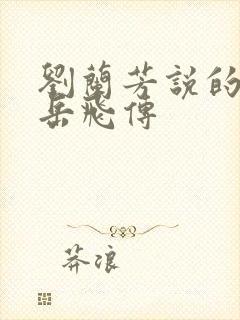 劉蘭芳説的
岳飛傳
莽浪